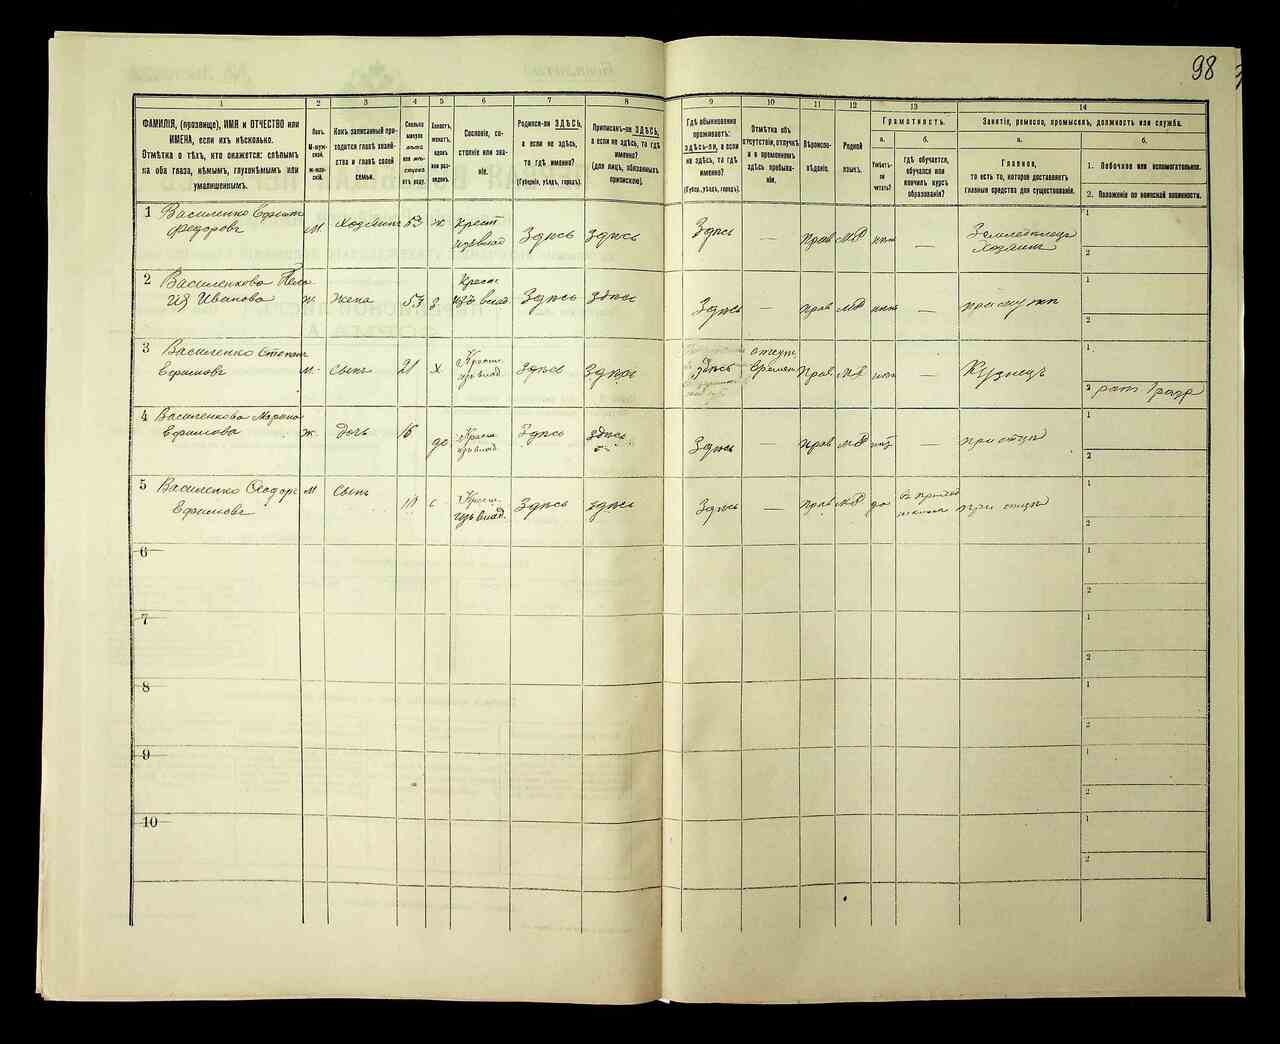 98
1 2 3 4 5 6 7 8 9 10 11 12 13 14
ФАМИЛІЯ, (прозвище), ИМЯ и ОТЧЕСТВО или
ИМЕНА, если ихъ нѣсколько.
Отмѣтка о тѣхъ, кто окажется: слѣпымъ
на оба глаза, нѣмымъ, глухонѣмымъ или
умалишеннымъ.
Полъ.
М-муж-
ской.
Ж-жен-
скій.
Какъ записанный при-
ходится главѣ хозяй-
ства и главѣ своей
семьи.
Сколько
минуло
лѣтъ
или мѣ-
сяцевъ
отъ роду.
Холостъ,
женатъ,
вдовъ
или раз-
веденъ.
Сословіе, со-
стояніе или зва-
ніе.
Родился-ли ЗДѢСЬ,
а если не здѣсь,
то гдѣ именно?
(Губернія, уѣздъ, городъ).
Приписанъ-ли ЗДѢСЬ,
а если не здѣсь, то гдѣ
именно?
(для лицъ, обязанныхъ
припискою).
Гдѣ обыкновенно
проживаетъ:
здѣсь-ли, а если
не здѣсь, то гдѣ
именно?
(Губер., уѣздъ, городъ).
Отмѣтка объ
отсутствіи, отлучкѣ
и о временномъ
здѣсь пребыва-
ніи.
Вѣроиспо-
вѣданіе.
Родной
языкъ.
Грамотность.
а. б.
Умѣетъ-
ли
читать?
гдѣ обучается,
обучался или
кончилъ курсъ
образованія?
Занятіе, ремесло, промыселъ, должность или служба.
а. б.
Главное,
то есть то, которое доставляетъ
главныя средства для существованія.
1. Побочное или вспомогательное.
2. Положеніе по воинской повинности.
1 Василенко Ефимъ
Федоровъ М Хозяинъ 53 ж Крест изъ влад Здѣсь Здѣсь Здѣсь — Прав МР нѣтъ — Земледѣлецъ Хозяинъ
1
2
2 Василенкова Пела
гія Иванова ж. Жена 53 з Крест изъ влад Здѣсь Здѣсь Здѣсь — Прав МР нѣтъ — при мужѣ
1
2
3 Василенко Степанъ
Ефимовъ М. Сынъ 21 х Крест изъ влад Здѣсь Здѣсь Здѣсь отсут. времен. Прав МР нѣтъ — Кузнецъ
1
2 рат. 1 разр
4 Василенкова Марина
Ефимова ж. Дочь 16 дѣ Крест изъ влад Здѣсь Здѣсь Здѣсь — Прав МР нѣтъ — при отцѣ
1
2
5 Василенко Ѳеодоръ
Ефимовъ М Сынъ 11 Крест изъ влад. Здѣсь Здѣсь Здѣсь — Прав МР да при отцѣ
1
2
6
1
2
7
1
2
8
1
2
9
1
2
10
1
2